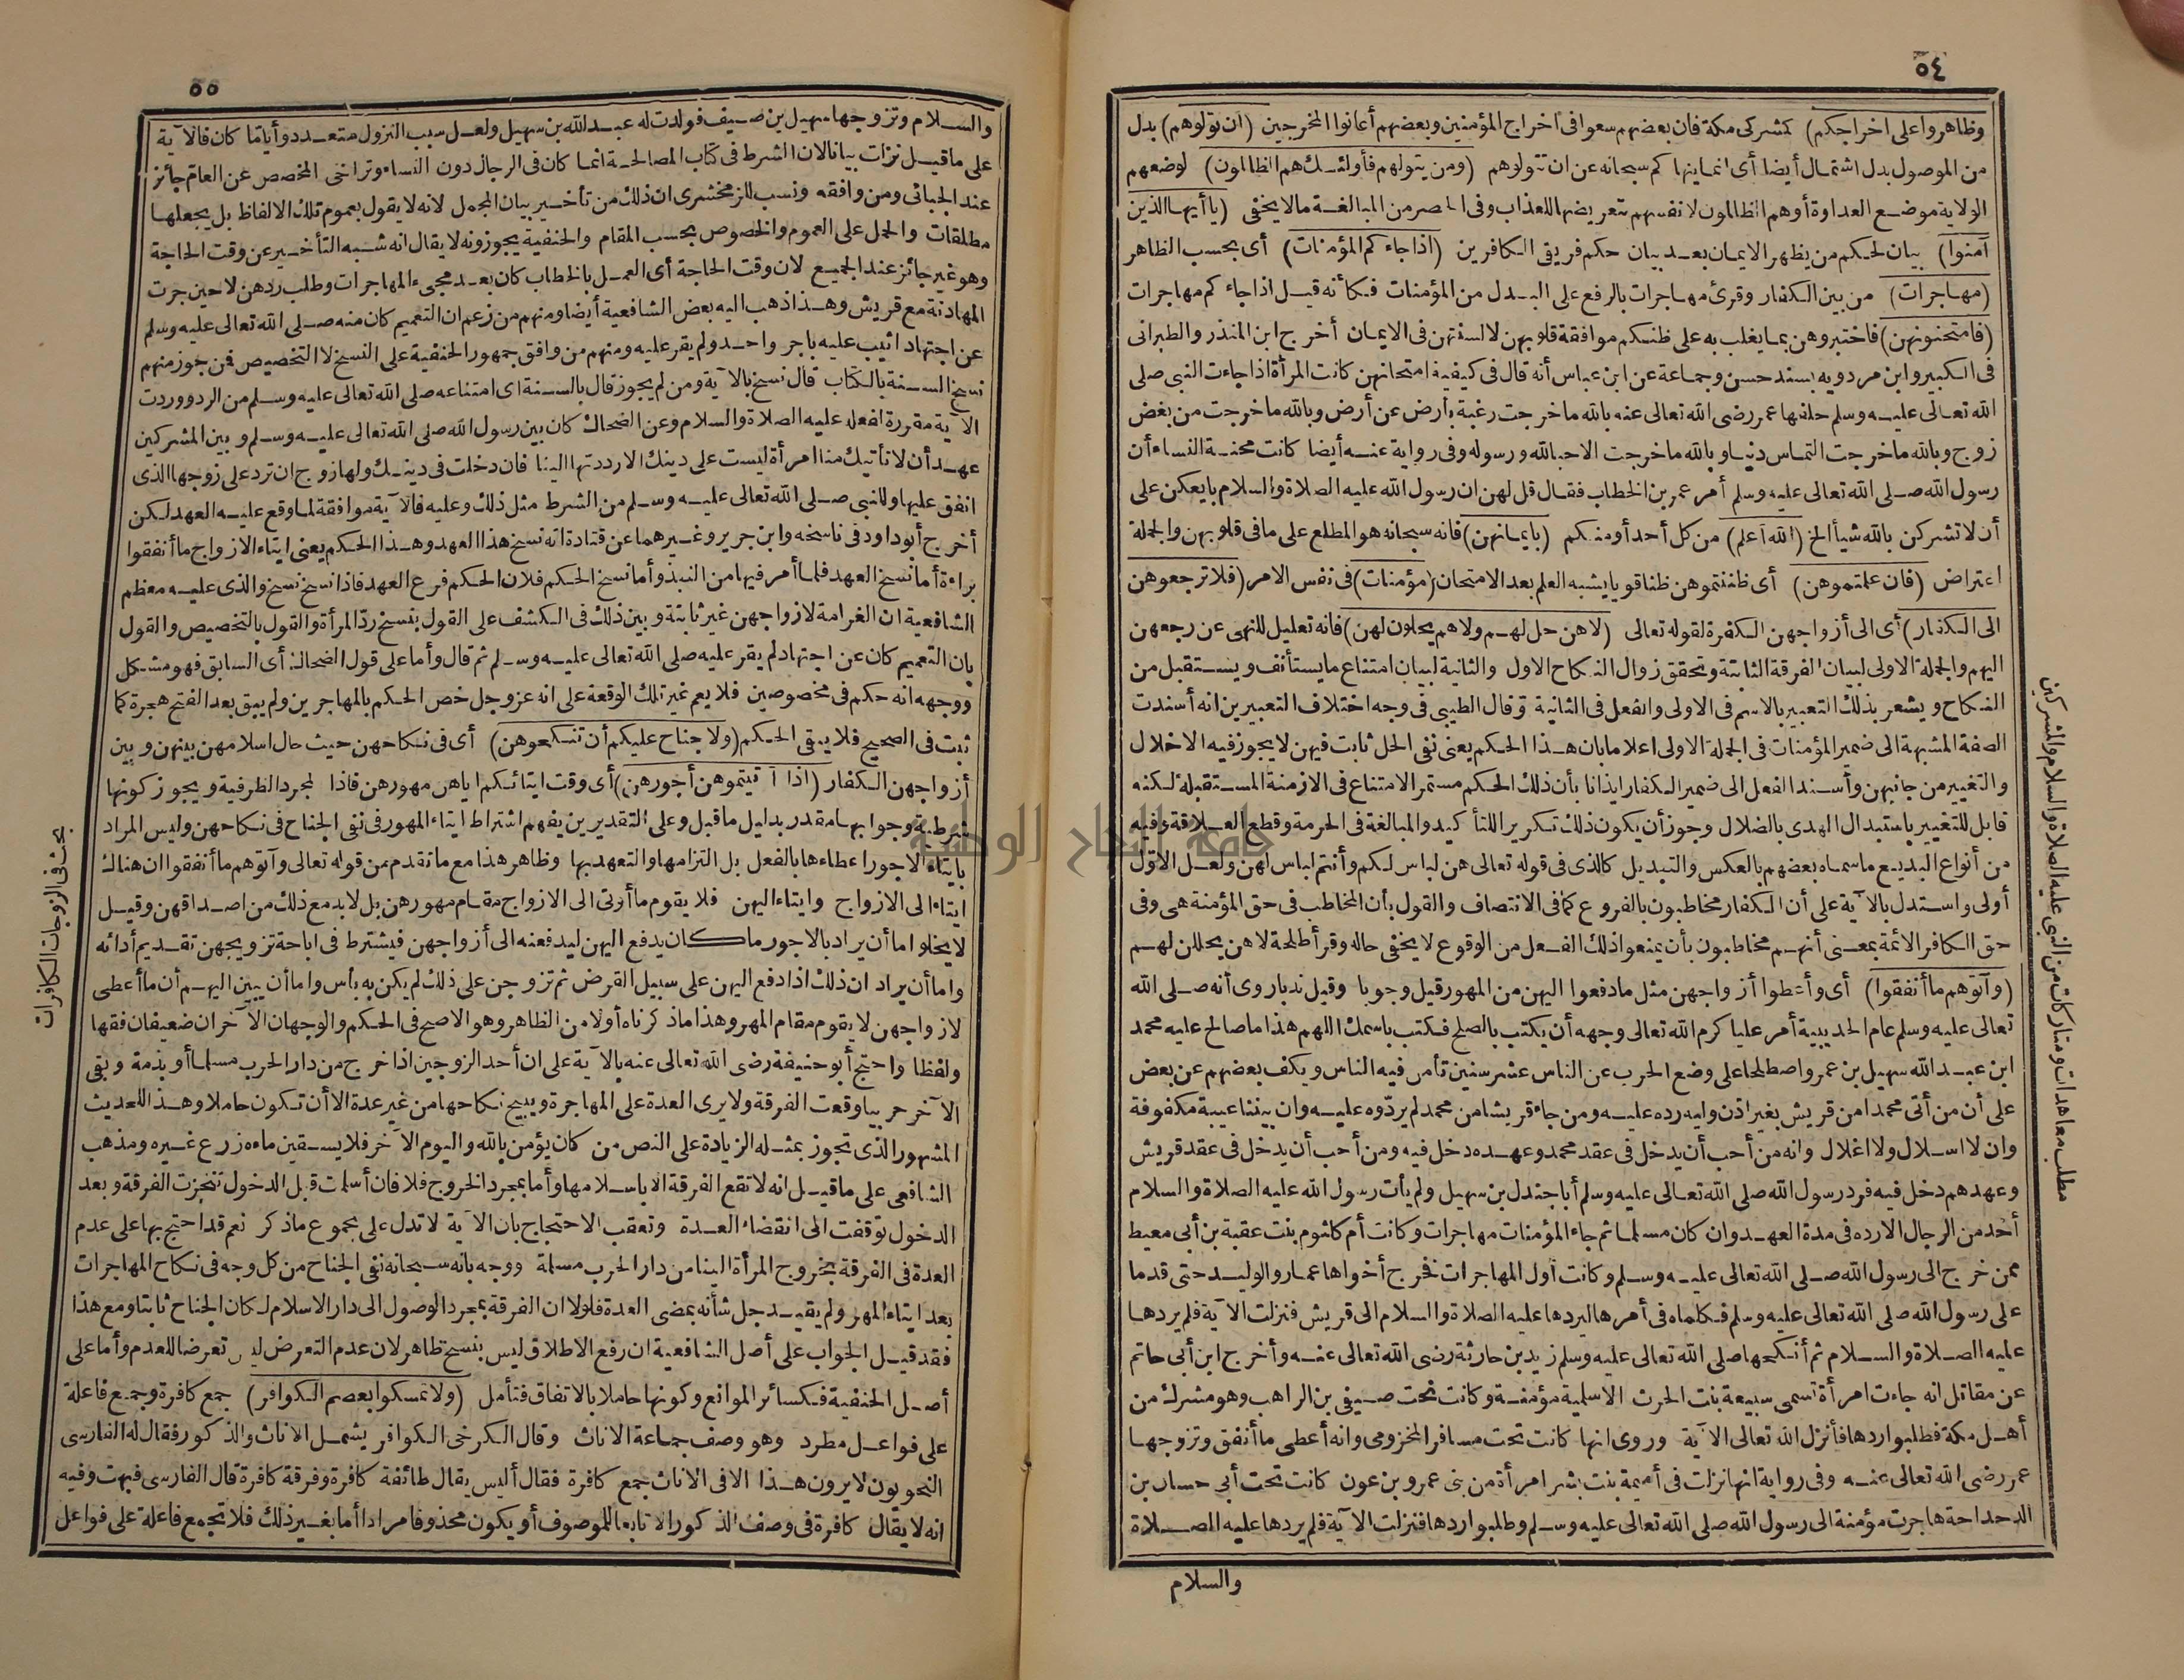 ٥٤
وظاهروا على اخراجكم) كمشركى مكة فان بعضهم سعوا فى اخراج المؤمنين وبعضهم أعانوا المخرجين (أن تولوهم) بدل
من الموصول بدل اشتمال أيضا أى انما ينهاكم سبحانه عن ان تتولوهم (ومن يتولهم فأولئك هم الظالمون) لوضعهم
الولاية موضع العداوة أو هم الظالمون لانفسهم بتعريضها للعذاب وفى الحصر من المبالغة ما لا يخفى (يا أيها الذين
آمنوا) بيان لحكم من يظهر الايمان بعد بيان حكم فريقى الكافرين (اذا جاءكم المؤمنات) أى بحسب الظاهر
(مهاجرات) من بين الكفار وقرئ مهاجرات بالرفع على البدل من المؤمنات فكأنه قيل اذا جاءكم مهاجرات
(فامتحنوهن) فاختبروهن بما يغلب به على ظنكم موافقة قلوبهن لالسنتهن فى الايمان أخرج ابن المنذر والطبرانى
فى الكبير وابن مردويه بسند حسن وجماعة عن ابن عباس أنه قال فى كيفية امتحانهن كانت المرأة اذا جاءت النبى صلى
الله تعالى عليه وسلم حلفها عمر رضى الله تعالى عنه بالله ما خرجت رغبة بأرض عن أرض وبالله ما خرجت من بغض
زوج وبالله ما خرجت التماس دنيا وبالله ما خرجت الا حبا لله ورسوله وفى رواية عنه أيضا كانت محنة النساء أن
رسول الله صلى الله تعالى عليه وسلم أمر عمر بن الخطاب فقال قل لهن ان رسول الله عليه الصلاة والسلام بايعكن على
أن لا تشركن بالله شيأ الخ (الله أعلم) من كل أحد أو منكم (بايمانهن) فانه سبحانه هو المطلع على ما فى قلوبهن والجملة
اعتراض (فان علمتموهن) أى ظننتموهن ظنا قويا يشبه العلم بعد الامتحان (مؤمنات) فى نفس الامر (فلا ترجعوهن
الى الكفار) أى الى أزواجهن الكفرة لقوله تعالى (لا هن حل لهم ولا هم يحلون لهن) فانه تعليل للنهى عن رجعهن
اليهم والجملة الاولى لبيان الفرقة الثابتة وتحقق زوال النكاح الاول والثانية لبيان امتناع ما يستأنف ويستقبل من
النكاح ويشعر بذلك التعبير بالاسم فى الاولى والفعل فى الثانية وقال الطيبى فى وجه اختلاف التعبيرين انه أسندت
الصفة المشبهة الى ضمير المؤمنات فى الجملة الاولى اعلاما بان هذا الحكم يعنى نفى الحل ثابت فيهن لا يجوز فيه الاخلال
والتغيير من جانبهن وأسند الفعل الى ضمير الكفار ايذانا بأن ذلك الحكم مستمر الامتناع فى الازمنة المستقبلة لكنه
قابل للتغيير باستبدال الهدى بالضلال وجوز أن يكون ذلك تكريرا للتأكيد والمبالغة فى الحرمة وقطع العلاقة وفيه
من أنواع البديع ما سماه بعضهم بالعكس والتبديل كالذى فى قوله تعالى هن لباس لكم وأنتم لباس لهن ولعل الاول
أولى واستدل بالآية على أن الكفار مخاطبون بالفروع كما فى الانتصاف والقول بأن المخاطب فى حق المؤمنة هى وفى
حق الكافر الائمة بمعنى أنهم مخاطبون بأن يمنعوا ذلك الفعل من الوقوع لا يخفى حاله وقرأ طلحة لا هن يحللن لهم
(وآتوهم ما أنفقوا) أى وأعطوا أزواجهن مثل ما دفعوا اليهن من المهور قيل وجوبا وقيل ندبا روى أنه صلى الله
تعالى عليه وسلم عام الحديبية أمر عليا كرم الله تعالى وجهه أن يكتب بالصلح فكتب باسمك اللهم هذا ما صالح عليه محمد
ابن عبد الله سهيل بن عمرو اصطلحا على وضع الحرب عن الناس عشر سنين تأمن فيه الناس ويكف بعضهم عن بعض
على أن من أتى محمدا من قريش بغير اذن وليه رده عليه ومن جاء قريشا من محمد لم يردوه عليه وان بيننا عيبة مكفوفة
وان لا اسلال ولا اغلال وانه من أحب أن يدخل فى عقد محمد وعهده دخل فيه ومن أحب أن يدخل فى عقد قريش
وعهدهم دخل فيه فرد رسول الله صلى الله تعالى عليه وسلم أبا جندل بن سهيل ولم يأت رسول الله عليه الصلاة والسلام
أحد من الرجال الا رده فى مدة العهد وان كان مسلما ثم جاء المؤمنات مهاجرات وكانت أم كلثوم بنت عقبة بن أبى معيط
ممن خرج الى رسول الله صلى الله تعالى عليه وسلم وكانت أول المهاجرات فخرج أخواها عمار والوليد حتى قدما
على رسول الله صلى الله تعالى عليه وسلم فكلماه فى أمرها ليردها عليه الصلاة والسلام الى قريش فنزلت الآية فلم يردها
عليه الصلاة والسلام ثم أنكحها صلى الله تعالى عليه وسلم زيد بن حارثة رضى الله تعالى عنه وأخرج ابن أبى حاتم
عن مقاتل انه جاءت امرأة تسمى سبيعة بنت الحرث الاسلمية مؤمنة وكانت تحت صيفى بن الراهب وهو مشرك من
أهل مكة فطلبوا ردها فأنزل الله تعالى الآية وروى انها كانت تحت مسافر المخزومى وانه أعطى ما أنفق وتزوجها
عمر رضى الله تعالى عنه وفى رواية انها نزلت فى أميمة بنت بشر امرأة من بنى عمرو بن عون كانت تحت أبى حسان بن
الدحداحة هاجرت مؤمنة الى رسول الله صلى الله تعالى عليه وسلم وطلبوا ردها فنزلت الآية فلم يردها عليه الصلاة
والسلام
مطلب معاهدات ومتاركات من النبى عليه الصلاة والسلام والمشركين
٥٥
والسلام وتزوجها سهيل بن صيف فولدت له عبد الله بن سهيل ولعل سبب النزول متعدد وأيا ما كان فالآية
على ما قيل نزلت بيانا لان الشرط فى كتاب المصالحة انما كان فى الرجال دون النساء وتراخى المخصص عن العام جائز
عند الجبائى ومن وافقه ونسب للزمخشرى ان ذلك من تأخير بيان المجمل لانه لا يقول بعموم تلك الالفاظ بل يجعلها
مطلقات والحمل على العموم والخصوص بحسب المقام والحنفية يجوزونه لا يقال انه شبه التأخير عن وقت الحاجة
وهو غير جائز عند الجميع لان وقت الحاجة أى العمل بالخطاب كان بعد مجىء المهاجرات وطلب ردهن لا حين جرت
المهادنة مع قريش وهذا ذهب اليه بعض الشافعية أيضا ومنهم من زعم ان التعميم كان منه صلى الله تعالى عليه وسلم
عن اجتهاد اثيب عليه باجر واحد ولم يقر عليه ومنهم من وافق جمهور الحنفية على النسخ لا التخصيص فمن جوز منهم
نسخ السنة بالكتاب قال نسخ بالآية ومن لم يجوز قال بالسنة اى امتناعه صلى الله تعالى عليه وسلم من الرد ووردت
الآية مقررة لفعله عليه الصلاة والسلام وعن الضحاك كان بين رسول الله صلى الله تعالى عليه وسلم وبين المشركين
عهد أن لا تأتيك منا امرأة ليست على دينك الا رددتها الينا فان دخلت فى دينك ولها زوج ان ترد على زوجها الذى
انفق عليها وللنبى صلى الله تعالى عليه وسلم من الشرط مثل ذلك وعليه فالآية موافقة لما وقع عليه العهد لكن
أخرج أبو داود فى ناسخه وابن جرير وغيرهما عن قتادة انه نسخ هذا العهد وهذا الحكم يعنى ايتاء الازواج ما أنفقوا
براءة أما نسخ العهد فلما أمر فيها من النبذ وأما نسخ الحكم فلان الحكم فرع العهد فاذا نسخ نسخ والذى عليه معظم
الشافعية ان الغرامة لازواجهن غير ثابتة وبين ذلك فى الكشف على القول بنسخ رد المرأة والقول بالتخصيص والقول
بان التعميم كان عن اجتهاد لم يقر عليه صلى الله تعالى عليه وسلم ثم قال وأما على قول الضحاك أى السابق فهو مشكل
ووجهه انه حكم فى مخصوصين فلا يعم غير تلك الوقعة على انه عز وجل خص الحكم بالمهاجرين ولم يبق بعد الفتح هجرة كما
ثبت فى الصحيح فلا يبقى الحكم (ولا جناح عليكم أن تنكحوهن) أى فى نكاحهن حيث حال اسلامهن بينهن وبين
أزواجهن الكفار (اذا آتيتموهن أجورهن) أى وقت ايتائكم اياهن مهورهن فاذا لمجرد الظرفية ويجوز كونها
شرطية وجوابها مقدر بدليل ما قبل وعلى التقديرين يفهم اشتراط ايتاء المهور فى نفى الجناح فى نكاحهن وليس المراد
بايتاء الاجور اعطاءها بالفعل بل التزامها والتعهد بها وظاهر هذا مع ما تقدم من قوله تعالى وآتوهم ما أنفقوا ان هناك
ايتاء الى الازواج وايتاء اليهن فلا يقوم ما أوتى الى الازواج مقام مهورهن بل لا بد مع ذلك من اصداقهن وقيل
لا يخلو اما أن يراد بالاجور ما كان يدفع اليهن ليدفعنه الى أزواجهن فيشترط فى اباحة تزويجهن تقديم أدائه
واما أن يراد ان ذلك اذا دفع اليهن على سبيل القرض ثم تزوجن على ذلك لم يكن به بأس واما أن يبين اليهم أن ما أعطى
لازواجهن لا يقوم مقام المهر وهذا ما ذكرناه أولا من الظاهر وهو الاصح فى الحكم والوجهان الآخران ضعيفان فقها
ولفظا واحتج أبو حنيفة رضى الله تعالى عنه بالآية على ان أحد الزوجين اذا خرج من دار الحرب مسلما أو بذمة وبقى
الآخر حربيا وقعت الفرقة ولا يرى العدة على المهاجرة ويبيح نكاحها من غير عدة الا أن تكون حاملا وهذا للحديث
المشهور الذى تجوز بمثله الزيادة على النص من كان يؤمن بالله واليوم الآخر فلا يسقين ماءه زرع غيره ومذهب
الشافعى على ما قيل انه لا تقع الفرقة الا باسلامها وأما بمجرد الخروج فلا فان أسلمت قبل الدخول تنجزت الفرقة وبعد
الدخول توقفت الى انقضاء العدة وتعقب الاحتجاج بان الآية لا تدل على مجموع ما ذكر نعم قد احتج بها على عدم
العدة فى الفرقة بخروج المرأة الينا من دار الحرب مسلمة ووجه بانه سبحانه نفى الجناح من كل وجه فى نكاح المهاجرات
بعد ايتاء المهر ولم يقيد جل شأنه بمضى العدة فلولا ان الفرقة بمجرد الوصول الى دار الاسلام لكان الجناح ثابتا ومع هذا
فقد قيل الجواب على أصل الشافعية ان رفع الاطلاق ليس بنسخ ظاهر لان عدم التعرض ليس تعرضا للعدم وأما على
أصل الحنفية فكسائر الموانع وكونها حاملا بالاتفاق فتأمل (ولا تمسكوا بعصم الكوافر) جمع كافرة وجمع فاعلة
على فواعل مطرد وهو وصف جماعة الاناث وقال الكرخى الكوافر يشمل الاناث والذكور فقال له الفارسى
النحويون لا يرون هذا الا فى الاناث جمع كافرة فقال أليس يقال طائفة كافرة وفرقة كافرة قال الفارسى فبهت وفيه
انه لا يقال كافرة فى وصف الذكور الا تابعا للموصوف أو يكون محذوفا مرادا أما بغير ذلك فلا تجمع فاعلة على فواعل
بحث فى الزوجات الكافرات
جامعة النجاح الوطنية